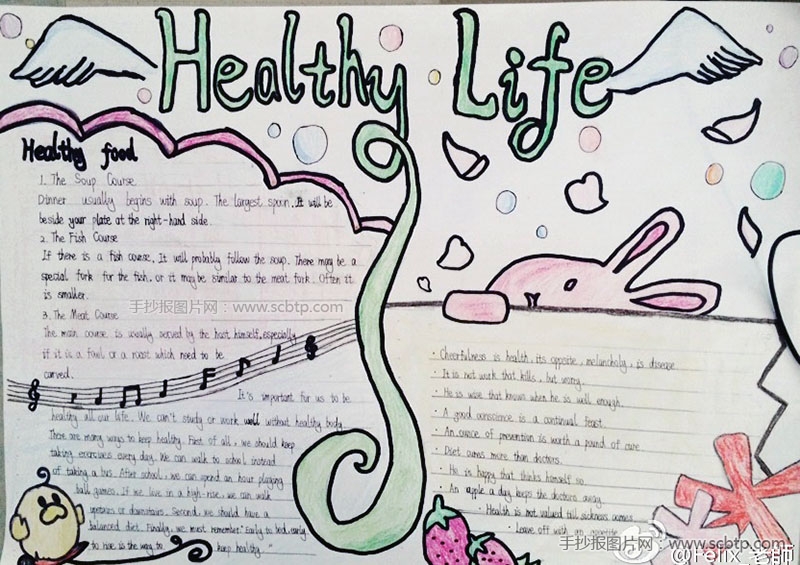 Healthy Life
Healthy food
1. The Soup Course
Dinner usually begins with soup. The largest spoon. It will be
beside your plate at the right-hand side.
2. The Fish Course
If there is a fish course, It will probably follow the soup. There may be a
special fork for the fish, or it may be similar to the meat fork. Often it
is smaller.
手抄报图片网：www.scbtp.com
3. The Meat Course
The main course is usually served by the host himself, especially
if it is a fowl or a roast which need to be
carved.
It's important for us to be
healthy all our life. We can't study or work well without healthy body.
There are many ways to keep healthy. First of all, we should keep
taking exercises every day. We can walk to school instead
of taking a bus. After school, we can spend an hour playing
ball games. If we live in a high-rise, we can walk
upstairs or downstairs. Second, we should have a
balanced diet. Finally, we must remember: "Early to bed, early
to rise is the way to keep healthy."
· Cheerfulness is health, its opposite, melancholy, is disease.
· It is not work that kills, but worry.
· He is wise that knows when he is well enough.
· A good conscience is a continual feast.
· An ounce of prevention is worth a pound of cure.
· Diet cures more than doctors.
· He is happy that thinks himself so.
· An apple a day keeps the doctors away.
· Health is not valued till sickness comes.
· Leave off with an appetite.
手抄报图片网：www.scbtp.com
@Felix_老師